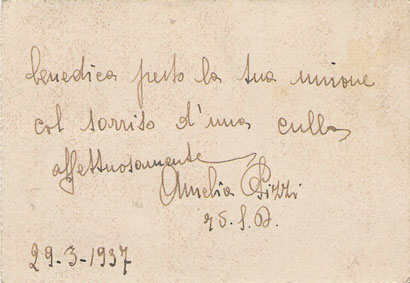 benedica presto la tua unione
col sorriso d'una culla
affettuosamente
Amelia Pizzi
29-3-1937